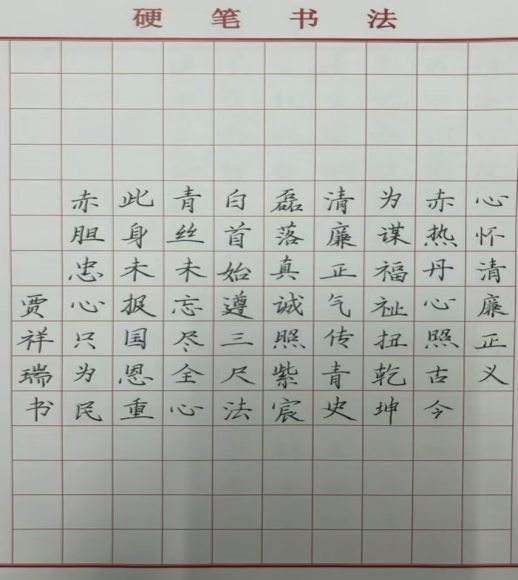 硬笔书法
心怀清廉正义
赤热丹心照古今
为谋福祉扭乾坤
清廉正气传青史
磊落真诚照紫宸
白首始遵三尺法
青丝未忘尽全心
此身未报国恩重
赤胆忠心只为民
贾祥瑞书